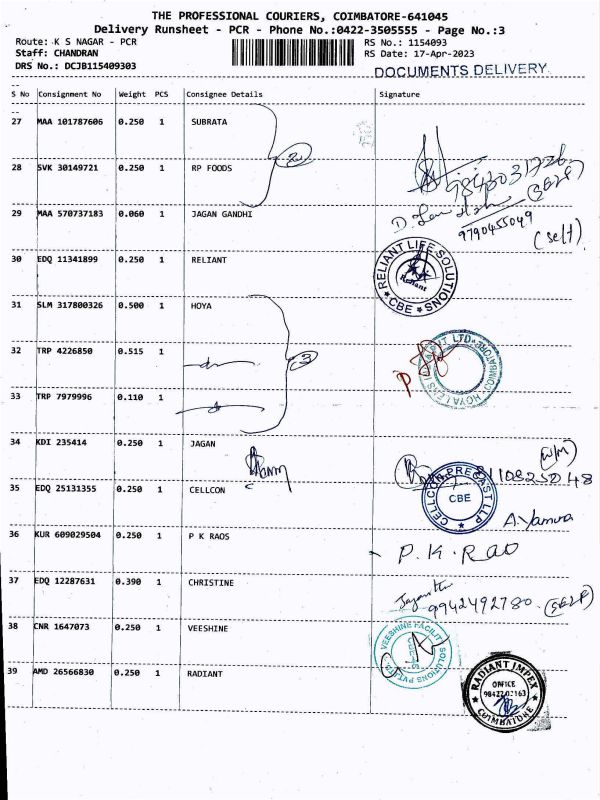 THE PROFESSIONAL COURIERS, COIMBATORE-641045
Delivery Runsheet - PCR - Phone No.:0422-3505555 - Page No.:3
Route: K S NAGAR - PCR RS No.: 1154093
Staff: CHANDRAN RS Date: 17-Apr-2023
DRS No.: DCJB115409303 DOCUMENTS DELIVERY
S No Consignment No Weight PCS Consignee Details Signature
27 MAA 101787606 0.250 1 SUBRATA
28 SVK 30149721 0.250 1 RP FOODS (SELF)
29 MAA 570737183 0.060 1 JAGAN GANDHI 9790455049 (self)
30 EDQ 11341899 0.250 1 RELIANT RELIANT LIFE SOLUTIONS Reliant * CBE *
31 SLM 317800326 0.500 1 HOYA
32 TRP 4226850 0.515 1
33 TRP 7979996 0.110 1
34 KDI 235414 0.250 1 JAGAN (W/M)
35 EDQ 25131355 0.250 1 CELLCON CELLCON PRECAST LLP CBE A. Yamuna
36 KUR 609029504 0.250 1 P K RAOS P.K.RAO
37 EDQ 12287631 0.390 1 CHRISTINE 9942492780. (SELF)
38 CNR 1647073 0.250 1 VEESHINE VEESHINE FACILIT SOLUTIONS PVT
39 AMD 26566830 0.250 1 RADIANT RADIANT IMPEX OFFICE COIMBATORE